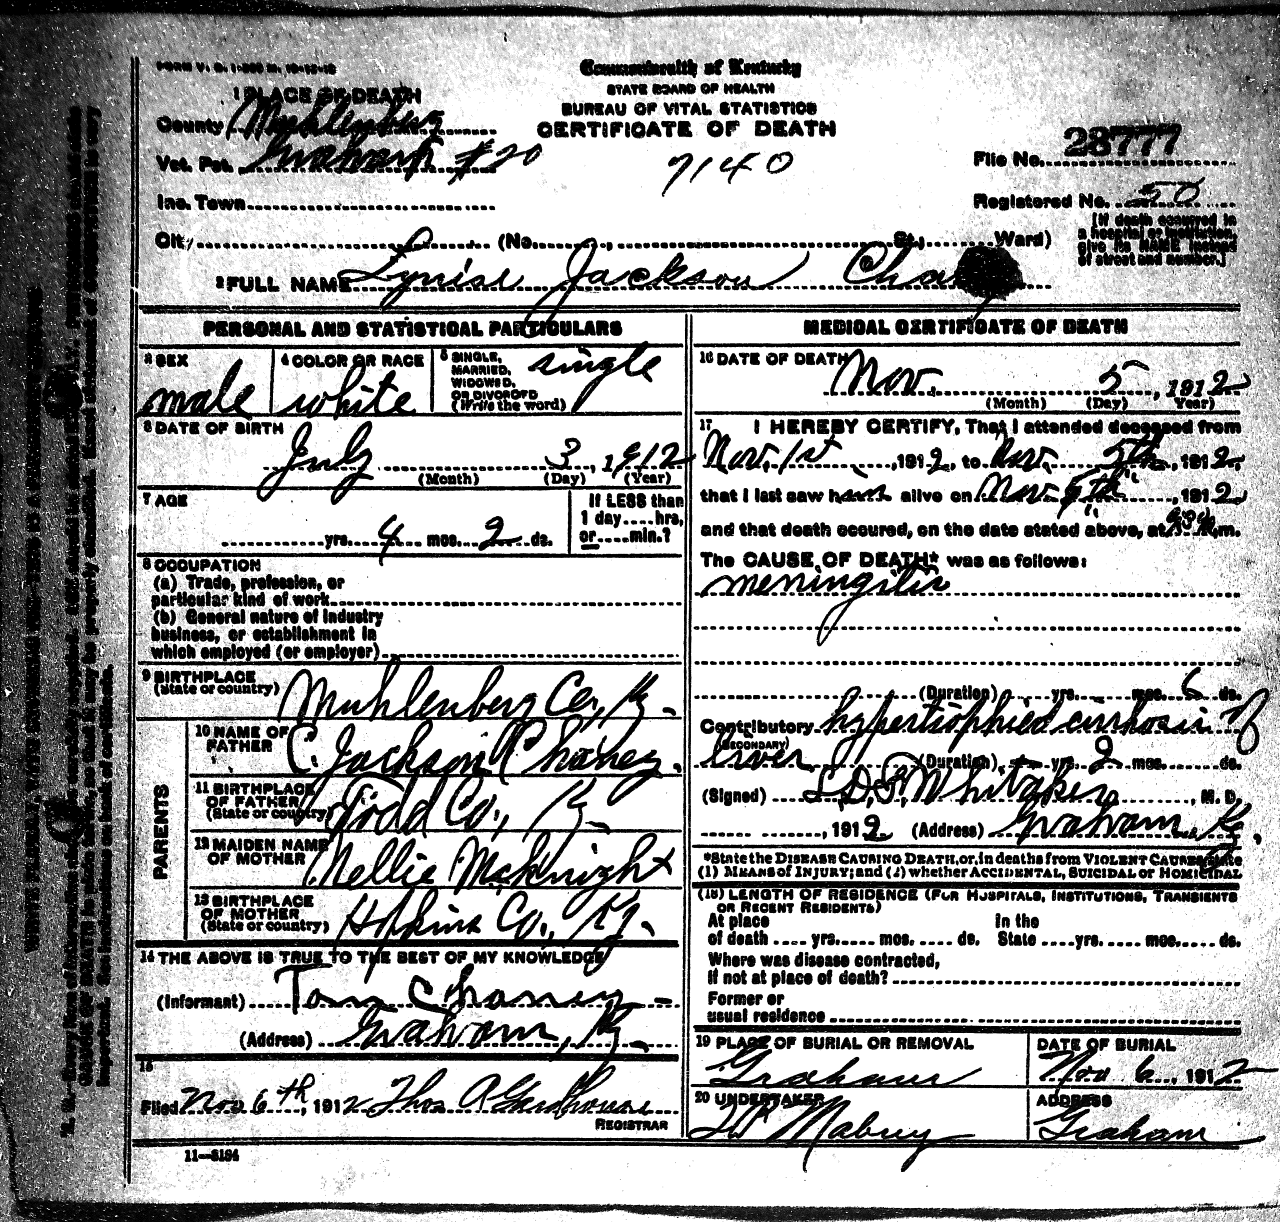 FORM V. S. 1-
Commonwealth of Kentucky
STATE BOARD OF HEALTH
BUREAU OF VITAL STATISTICS
CERTIFICATE OF DEATH
1 PLACE OF DEATH
County Muhlenberg
Vot. Pct. Graham #20
7140
File No. 28777
Inc. Town
Registered No. 50
City (No. , St., Ward)
[If death occurred in
a hospital or institution,
give its NAME instead
of street and number.]
2 FULL NAME Lynise Jackson
PERSONAL AND STATISTICAL PARTICULARS
3 SEX
male
4 COLOR OR RACE
white
5 SINGLE,
MARRIED,
WIDOWED,
OR DIVORCED
(Write the word)
single
6 DATE OF BIRTH
July 3, 1912
(Month) (Day) (Year)
7 AGE
yrs. 4 mos. 2 ds.
If LESS than
1 day....hrs,
or....min.?
8 OCCUPATION
(a) Trade, profession, or
particular kind of work
(b) General nature of industry
business, or establishment in
which employed (or employer)
9 BIRTHPLACE
(State or country)
Muhlenberg Co., Ky.
PARENTS
10 NAME OF
FATHER
C. Jackson Chaney.
11 BIRTHPLACE
OF FATHER
(State or country)
Todd Co., Ky.
12 MAIDEN NAME
OF MOTHER
Nellie McKnight
13 BIRTHPLACE
OF MOTHER
(State or country)
Hopkins Co., Ky.
14 THE ABOVE IS TRUE TO THE BEST OF MY KNOWLEDGE
(Informant) Tom Chaney
(Address) Graham, Ky.
15
Filed Nov 6th, 1912 Thos
REGISTRAR
11-3184
MEDICAL CERTIFICATE OF DEATH
16 DATE OF DEATH
Nov. 5, 1912
(Month) (Day) (Year)
17 I HEREBY CERTIFY, That I attended deceased from
Nov. 1st, 1912, to Nov. 5th, 1912,
that I last saw him alive on Nov. 5th, 1912
and that death occured, on the date stated above, at m.
The CAUSE OF DEATH* was as follows:
meningitis
(Duration) yrs. mos. ds.
Contributory hypertrophied cirrhosis of
(SECONDARY)
liver (Duration) yrs. 2 mos. ds.
(Signed) Whitaker, M. D.
, 1912 (Address) Graham Ky.
*State the DISEASE CAUSING DEATH, or, in deaths from VIOLENT CAUSES, state
(1) MEANS of INJURY; and (2) whether ACCIDENTAL, SUICIDAL or HOMICIDAL
(18) LENGTH OF RESIDENCE (FOR HOSPITALS, INSTITUTIONS, TRANSIENTS
OR RECENT RESIDENTS)
At place
of death .... yrs. .... mos. .... ds.
in the
State ....yrs. .... mos. .... ds.
Where was disease contracted,
if not at place of death?
Former or
usual residence
19 PLACE OF BURIAL OR REMOVAL
Graham
DATE OF BURIAL
Nov 6, 1912
20 UNDERTAKER
Mabury
ADDRESS
Graham